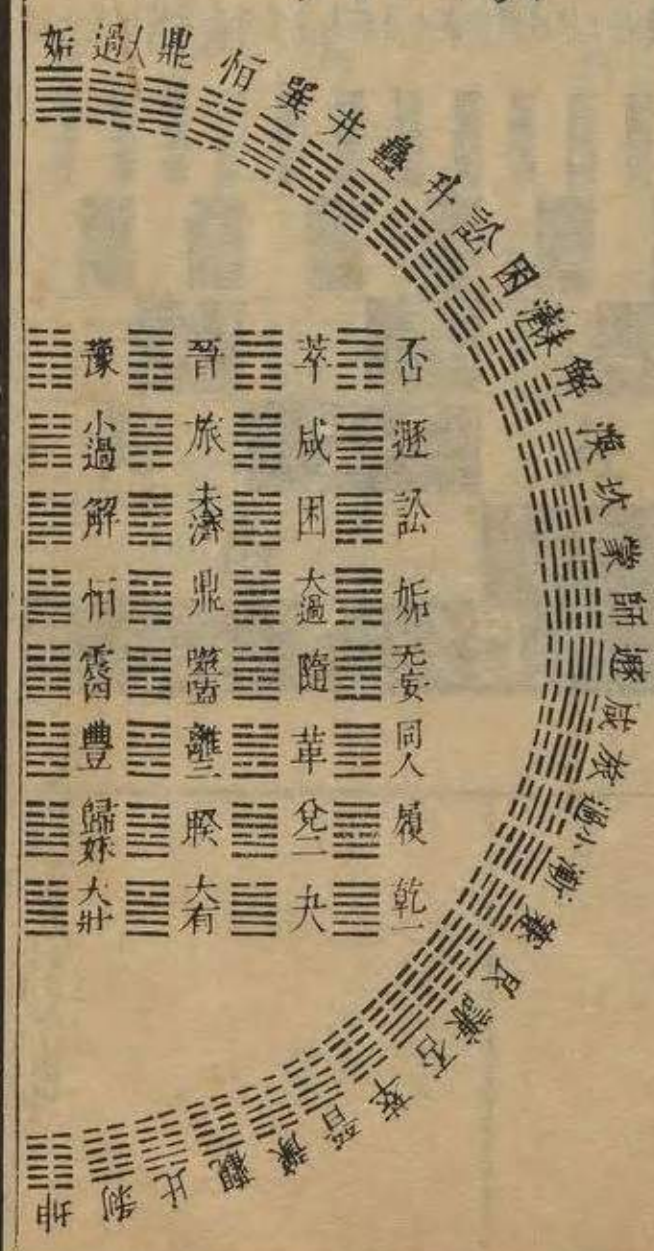 姤 大過 鼎 恒 巽 井 蠱 升 訟 困 未濟 解 渙 坎 蒙 師 遯 咸 旅 小過 漸 蹇 艮 謙 否 萃 晉 豫 觀 比 剝 坤
否 遯 訟 姤 无妄 同人 履 乾一
萃 咸 困 大過 隨 革 兌二 夬
晉 旅 未濟 鼎 噬嗑 離三 睽 大有
豫 小過 解 恒 震四 豐 歸妹 大壯